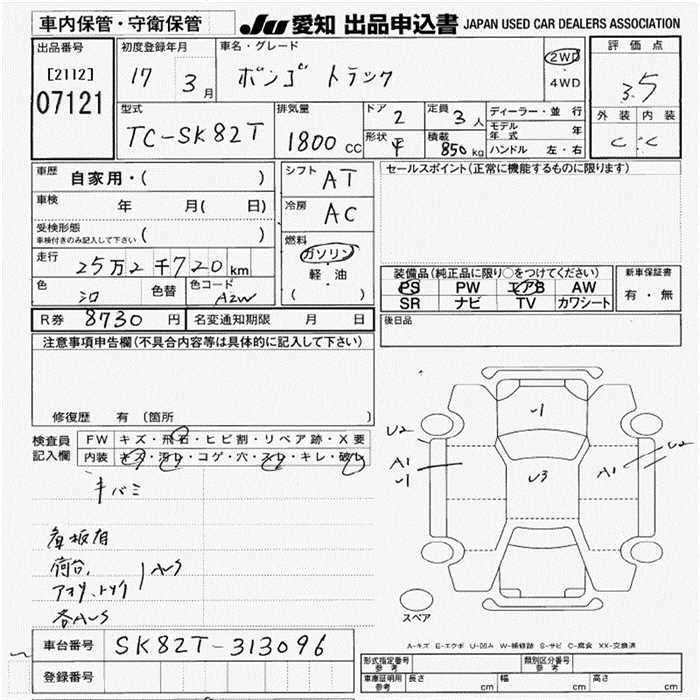 車内保管・守衛保管
JU 愛知 出品申込書 JAPAN USED CAR DEALERS ASSOCIATION
出品番号 初度登録年月 車名・グレード 評価点
[2112] 17 3月 ボンゴ トラック 2WD 3.5
07121 4WD
外装 内装
C C
型式 排気量 ドア 2 定員 3人 ディーラー・並行
モデル年式 年
TC-SK82T 1800CC 形状 平 積載 850kg ハンドル 左・右
車歴 自家用・( ) シフト AT セールスポイント(正常に機能するものに限ります)
車検 年 月( 日) 冷房 AC
受検形態
車検付きのみ記入して下さい ( )
燃料
走行 25万2千720km ガソリン
軽・油
( )
装備品(純正品に限り○をつけてください) 新車保証書
色 シロ 色替 色コード A2W PS PW エアB AW 有・無
SR ナビ TV カワシート
R券 8730円 名変通知期限 月 日 後日品
注意事項申告欄(不具合内容等は具体的に記入して下さい)
修復歴 有(箇所 )
検査員 FW キズ・飛石・ヒビ割・リペア跡・X要
記入欄 内装 キズ・汚れ・コゲ・穴・スレ・キレ・破レ
キバミ
荷台
アオリ、トリイ AUS
各AUS
U2 A1 U1 U3 A1 U2
スペア
A-キズ E-エクボ U-凹み W-補修跡 S-サビ C-腐食 XX-交換済
車台番号 SK82T-313096
登録番号
形式指定番号 参考 類別区分番号 参考
車庫証明用 参考 長さ cm 幅 cm 高さ cm